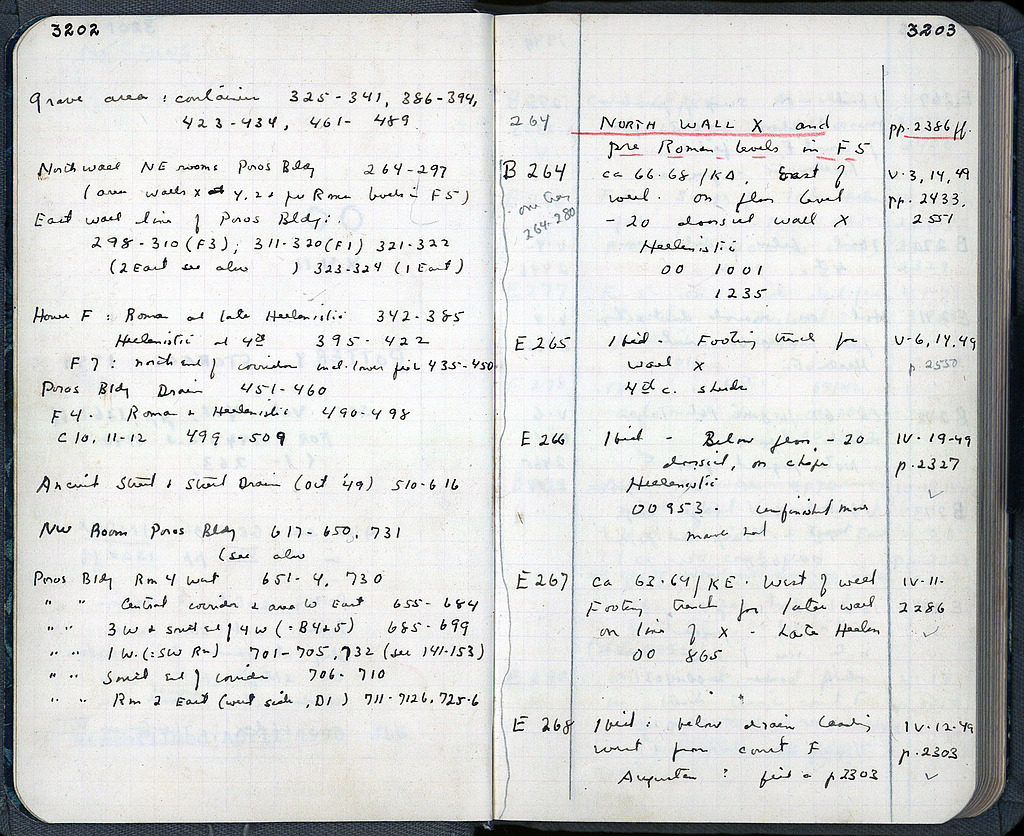 3202
Grave area : container 325-341, 386-394,
423-434, 461- 489
North wall NE rooms Poros Bldg 264-297
(area walls X + Y, Z & pre Roman levels in F5)
East wall line of Poros Bldg:
298-310 (F3); 311-320 (F1) 321-322
(2 East see also ) 323-324 (1 East)
House F : Roman and late Hellenistic 342-385
Hellenistic and 4th 395-422
F7: north end of corridor incl. lower fill 435-450
Poros Bldg Drain 451-460
F4. Roman & Hellenistic 490-498
C10, 11-12 499-509
Ancient Street & Street Drain (Oct '49) 510-616
NW Room Poros Bldg 617-650, 731
(see also
Poros Bldg Rm 4 West 651-4, 730
" " Central corridor & area W East 655-684
" " 3 W & south end of 4 W (= B4+5) 685-699
" " 1 W. (=SW Rm) 701-705, 732 (see 141-153)
" " South end of corridor 706-710
" " Rm 2 East (west side, D1) 711-712b, 725-6
3203
264 NORTH WALL X and pp. 2386 ff.
pre Roman levels in F5
B 264 ca 66-68/KD. East of V-3,14,49
well. on floor level pp. 2433,
264-280 -20 dorsal wall X 2551
Hellenistic
00 1001
1235
E 265 Ibid - Footing trench for V-6,14,49
wall X p. 2550
4th c. sherds
E 266 Ibid - Below floor -20 IV-19-49
on p. 2327
Hellenistic ✓
00 953. unfinished
E 267 ca 63-64/KE. West of well IV-11-
Footing trench for later wall 2286
on line of X - Late Hellen ✓
00 865
E 268 Ibid: below drain leading IV-12-49
west from court F p. 2303
Augustan ? p 2303 ✓